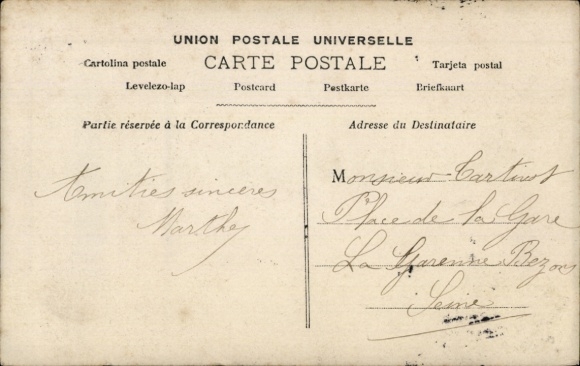 UNION POSTALE UNIVERSELLE
CARTE POSTALE
Cartolina postale Tarjeta postal
Levelezo-lap Postcard Postkarte Briefkaart
Partie réservée à la Correspondance
Adresse du Destinataire
Amitiés sincères
Marthe
Monsieur Cartinot
Place de la Gare
La Garenne Bezons
Seine